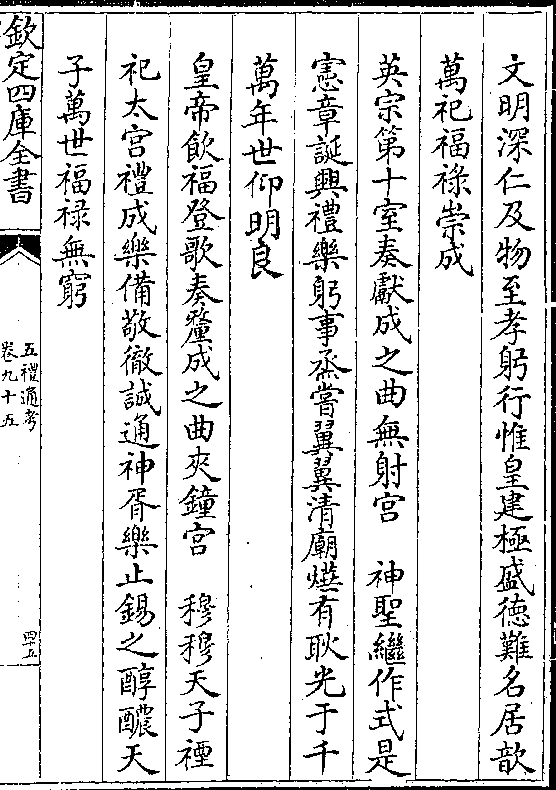 文明深仁及物至孝躬行惟皇建極盛徳難名居歆
萬祀福祿崇成
英宗第十室奏獻成之曲無射宫　神聖繼作式是
憲章誕興禮樂躬事烝嘗翼翼清廟燁有耿光于千
萬年世仰明良
皇帝飲福登歌奏釐成之曲夾鐘宫　穆穆天子禋
祀太宫禮成樂備敬徹誠通神胥樂止錫之醇醲天
子萬世福禄無窮
欽定四庫全書
五禮通考
卷九十五
四五